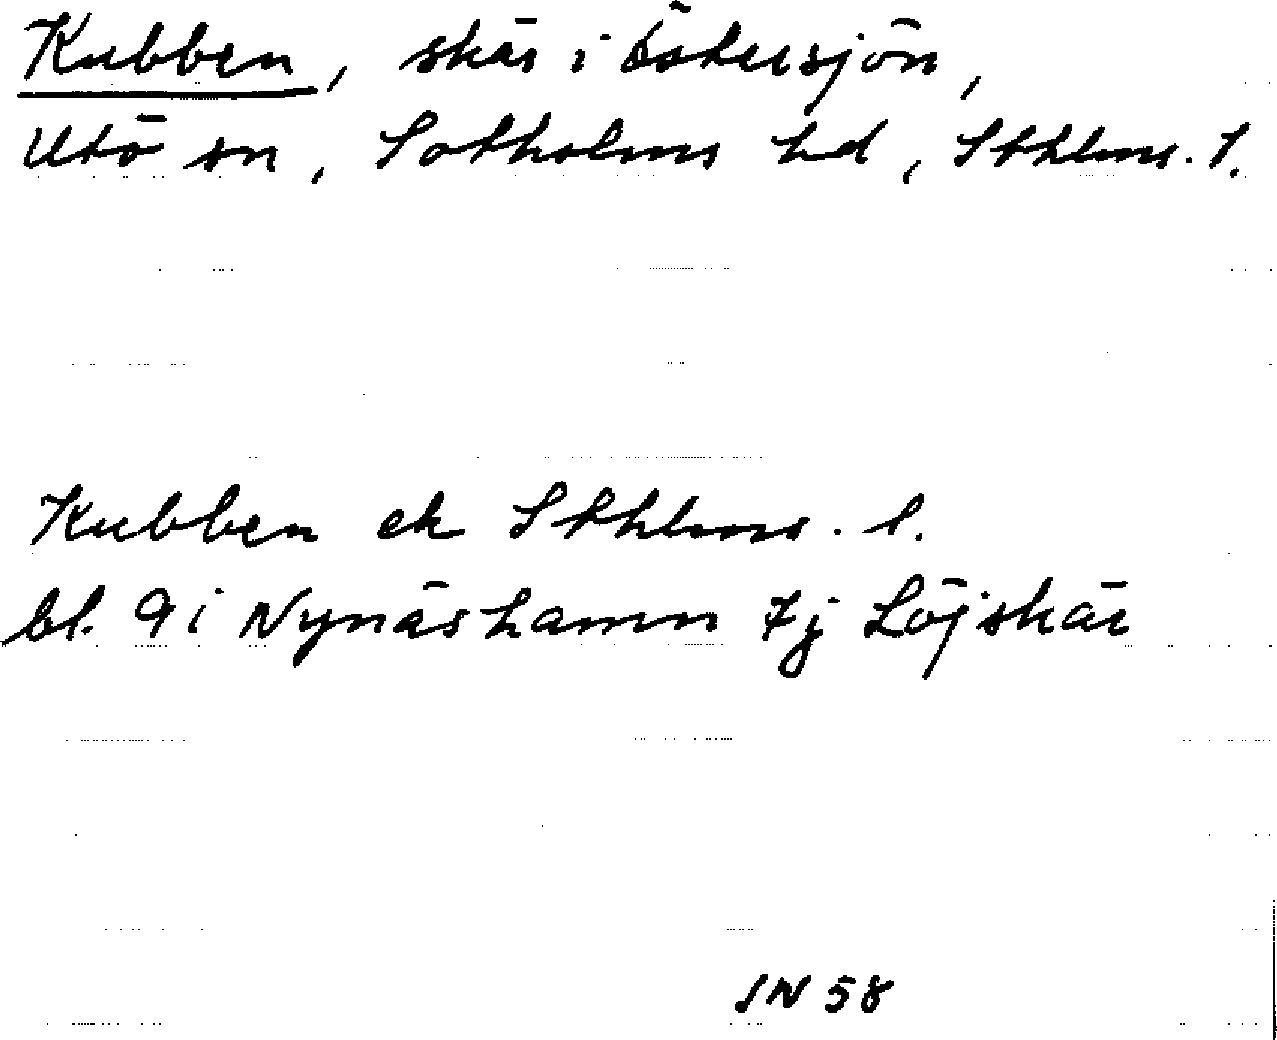 Kubben, skär i Östersjön,
Utö sn, Sotholms hd, Sthlms. l.
Kubben ek Sthlms. l.
bl. 9 i Nynäshamn 7j Löjskär
SN 58